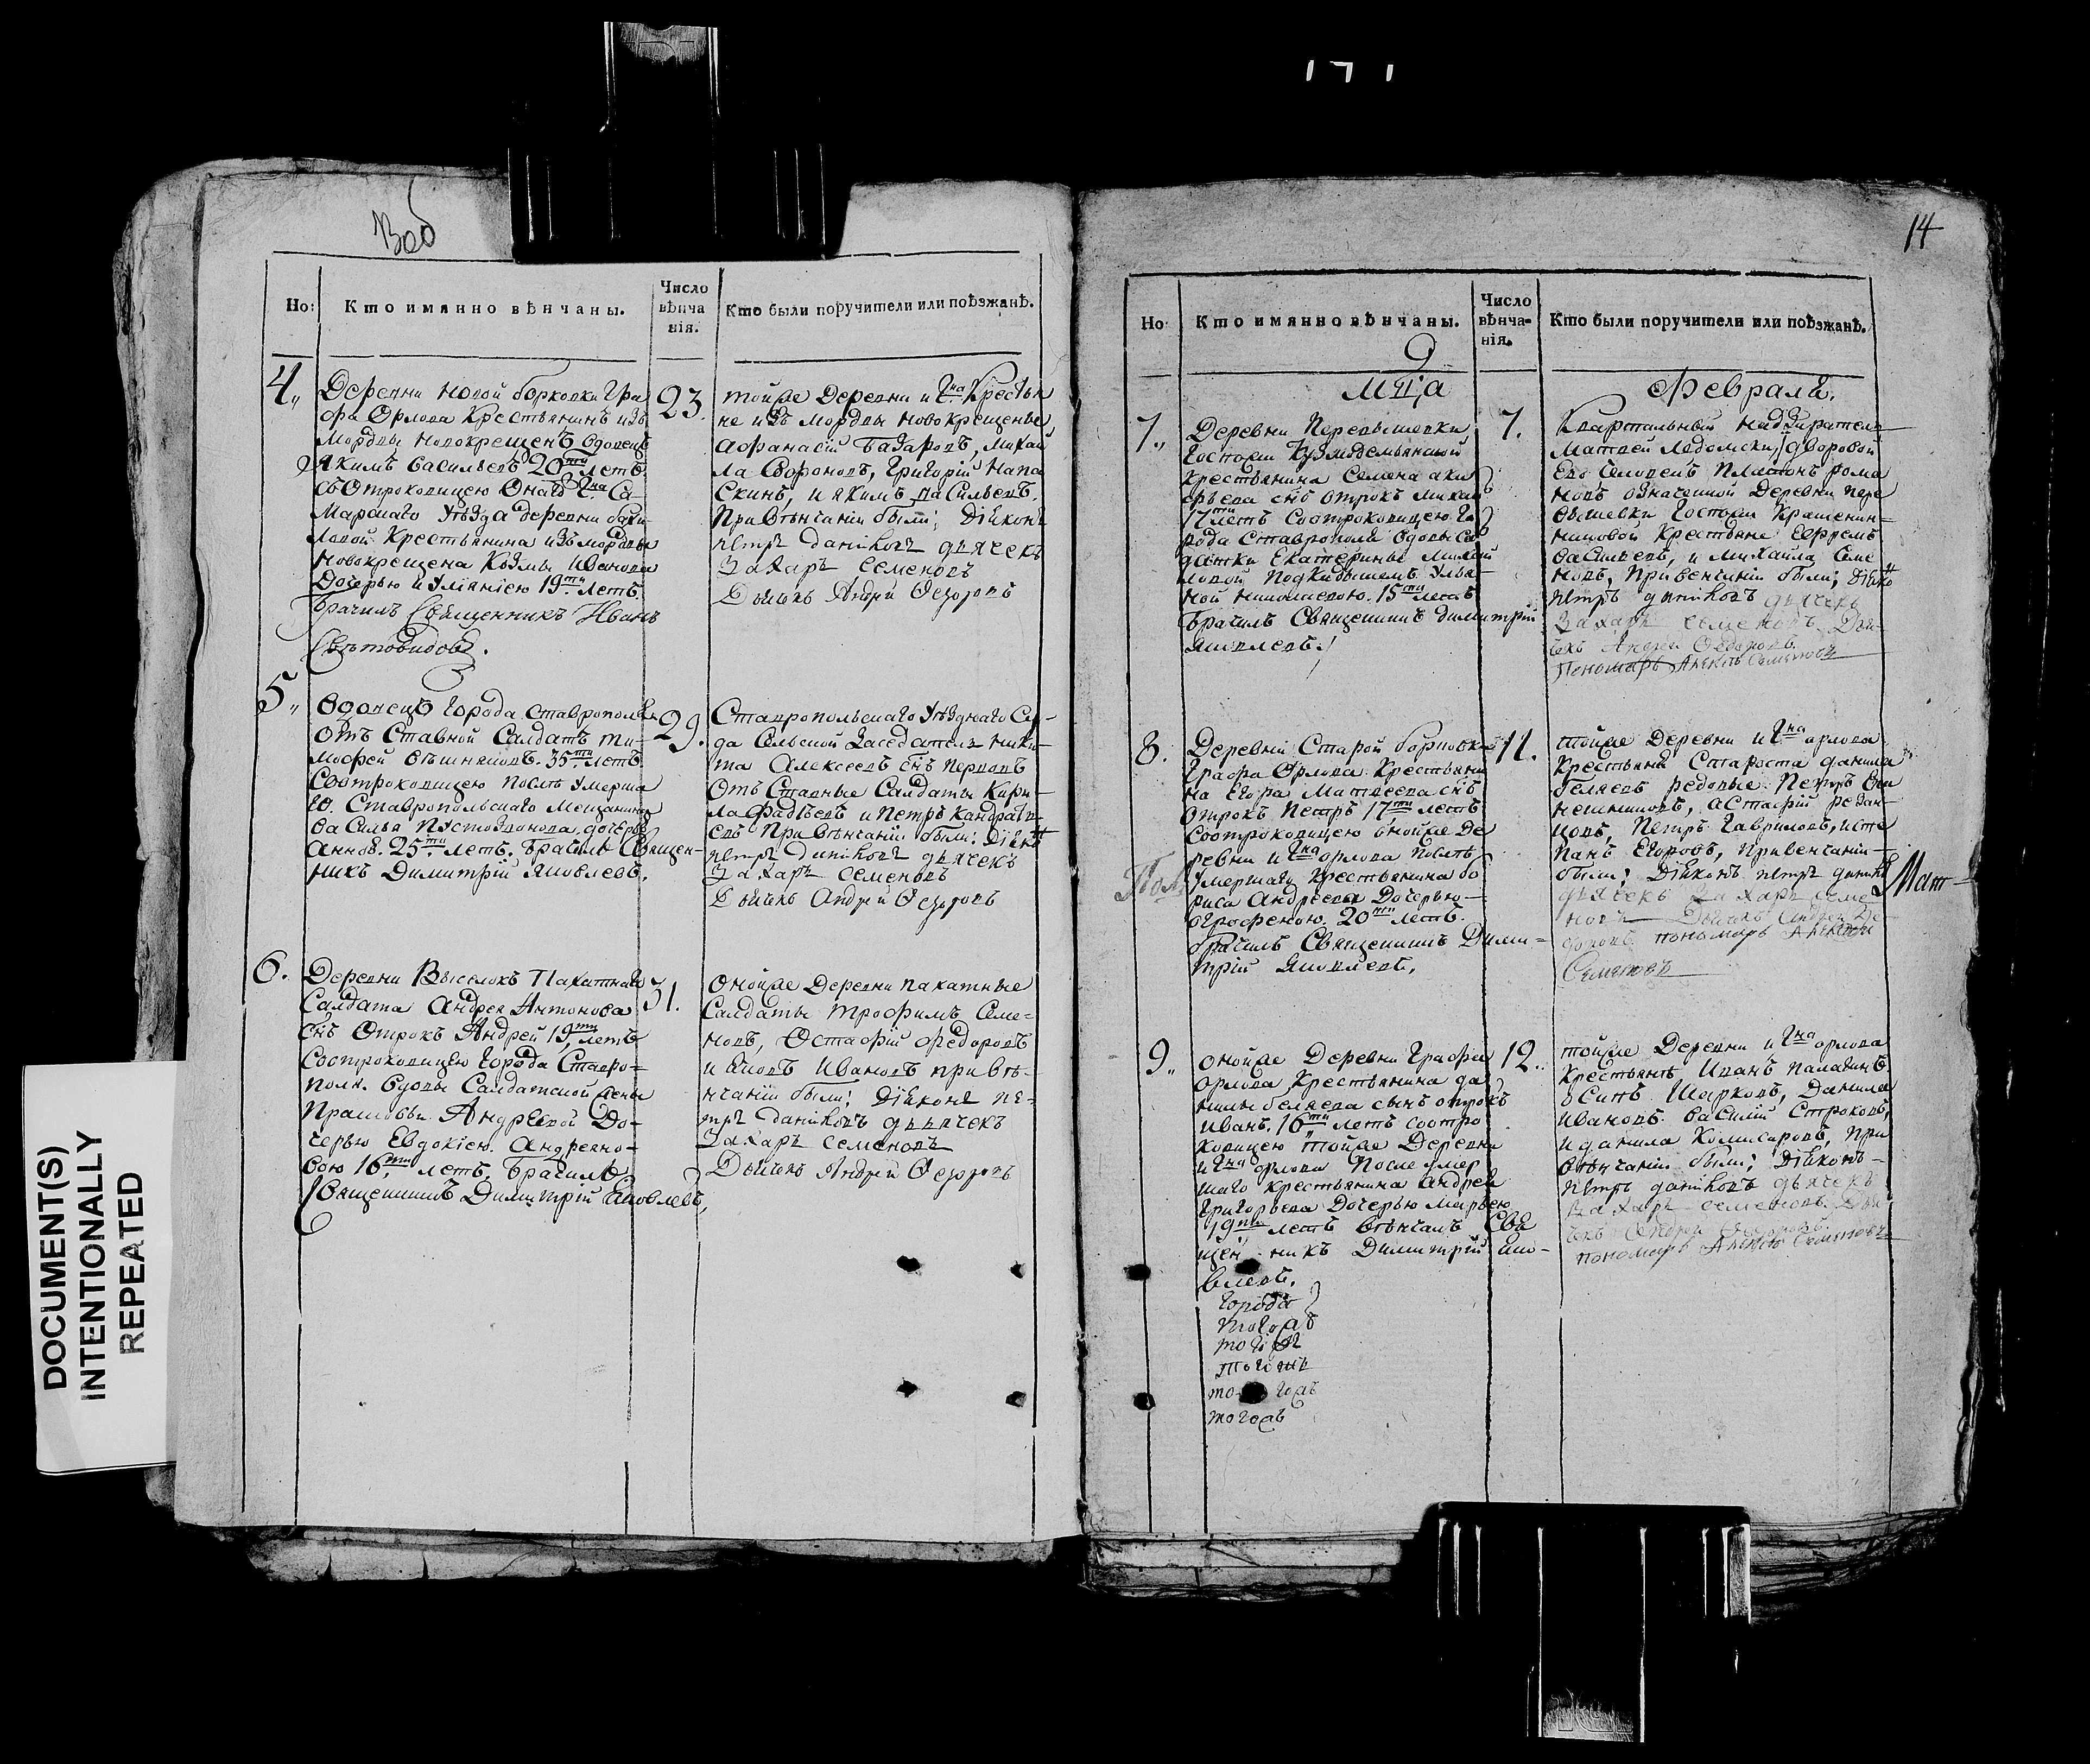 171
14
Но:
Кто имянно вѣнчаны.
Число
вѣнча
нія.
Кто были поручители или поѣзжанѣ.
4,,
Деревни новой борковки Гра
фа Орлова Крестьянинъ изъ
Мордвы новокрещенъ вдовецъ
Якимъ васильевъ 20ти летъ
Марскаго Уѣзда деревни
ловой Крестьянина изъ мордвы
новокрещена Козмы Иванова
Дочерью 19ти летъ.
Брачилъ Священникъ Иванъ
Свѣтовидовъ.
23.
тойже Деревни и Гна Крестья
не изъ Мордвы новокрещеные
Афанасій Базаровъ, Михай
ла Софоновъ, Григорій Напа
Скинъ, и якимъ васильевъ.
При вѣнчаніи были; Діяконъ
петръ данпловъ дьячекъ
Захаръ семеновъ
Дьячекъ Андрей Ѳедоровъ
5,,
вдовецъ Города Ставрополя
отъ Ставной Салдатъ ти-
мофей вѣшняковъ. 35ти летъ.
Соотроковицею послѣ Умерша
го. Ставропольскаго Мещанина
василья Пустозвонова дочерью
Анною. 25ти летъ. Брачилъ Священ-
никъ Димитрій Яковлевъ.
29.
Ставропольскаго Уѣзднаго Су-
да Сельской Заседатель ники-
та Алексеевъ снъ перповъ
отъ Ставные Салдаты Кири-
ла Фадѣевъ и Петръ Кандрать
евъ при вѣнчаніи были: Діяконъ
петръ даниловъ дьячекъ
Захаръ семеновъ
Дьячекъ Андрей Ѳедоровъ
6.
Деревни Выселокъ Пахатнаго
Салдата Андрея Антонова
снъ Отрокъ Андрей 19ти летъ
Соотроковицею Города Ставро-
поля. вдовы Салдатской жены
Прасковьи Андреевой До-
черью Евдокіею. Андреяно-
вою 16ти летъ. Брачилъ
Священникъ Димитрій Яковлевъ,
31.
онойже Деревни пахатные
Салдаты трофимъ Семе-
новъ, Остафій федоровъ
и Яковъ Ивановъ при вѣ-
нчаніи были; Діяконъ пе-
тръ даниловъ дьячекъ
Захаръ семеновъ
Дьячекъ Андрей Ѳедоровъ
Но
Кто имянно вѣнчаны.
Число
вѣнча-
нія.
Кто были поручители или поѣзжанѣ.
Мца
Февраля.
7,,
Деревни Перевышевки
Госпожи Кузмодемьянской
крестьянина Семена аки
17ти летъ Соотроковицею го
рода Ставрополя вдовы Са
датки Екатерины Михай
ловой Подкидышемъ Улья-
ной 15ти летъ
Брачилъ Священникъ димитрій
яковлевъ.
7.
Квартальный надзиратель
Матвей Ледомски, дворовой
его человекъ Платонъ рома
новъ означенной Деревни пере
вышевки Госпожи Крашенин-
никовой Крестьяне Ефремъ
васильевъ, и Михайла Семе
новъ, При венчаніи были; Дьяко
петръ даниловъ дьячекъ
Захаръ семеновъ Дья-
чекъ Андрей Ѳедоровъ
Пономарь Алексей Семеновъ
8.
Деревни Старой борковки
Графа Орлова Крестьяни
на Егора Матвеева снъ
отрокъ Петръ 17ти летъ
Соотроковицею онойже Де
ревни и Гна орлова послѣ
Умершаго Крестьянина бо
риса Андреева Дочерью-
огрофеною. 20ти летъ.
брачилъ Священникъ Дими-
трій яковлевъ.
11.
тойже Деревни и Гна орлова
Крестьяне Староста данила
беляевъ редовые Петръ
Петръ Гавриловъ, и сте
панъ Егоровъ, При венчаніи-
были; Діяконъ петръ данило
дьячекъ Захаръ семе
новъ Дьячекъ Андрей Ѳе
доровъ пономарь Алексей
Семеновъ
9,,
онойже Деревни Графа
орлова Крестьянина да
нилы беляева сынъ отрокъ
иванъ. 16ти летъ соотро
ковицею тойже Деревни
и Гна орлова После умер
шаго крестьянина Андрея
Григорьева Дочерью Марьею
19ти летъ Вѣнчалъ Свя
щенникъ Димитрій яко-
влевъ.
12.
тойже Деревни и Гна орлова
Крестьянѣ Иванъ палагинъ
осипъ Шарковъ, Данила
Ивановъ василій Строковъ,
и данила Комисаровъ, при
вѣнчаніи были; Діяконъ-
петръ даниловъ дьячекъ
Захаръ семеновъ Дья
чекъ Андрей Ѳедоровъ
пономарь Алексей Семеновъ
города
DOCUMENT(S)
INTENTIONALLY
REPEATED